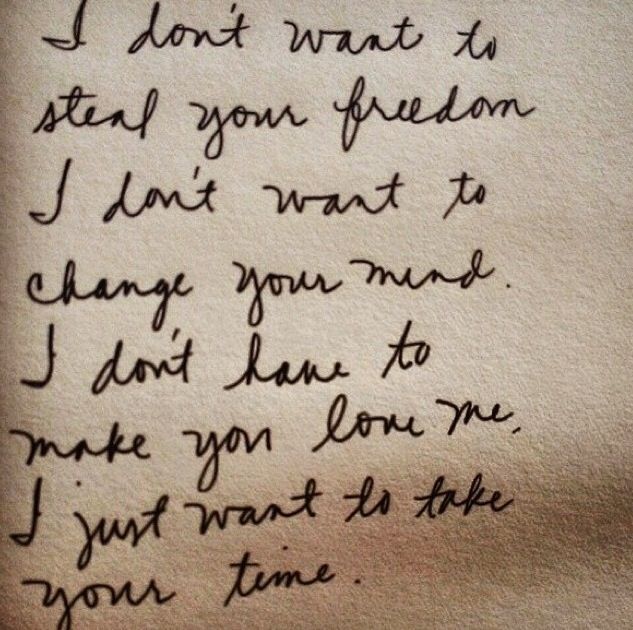 I don't want to
steal your freedom
I don't want to
change your mind.
I don't have to
make you love me,
I just want to take
your time.